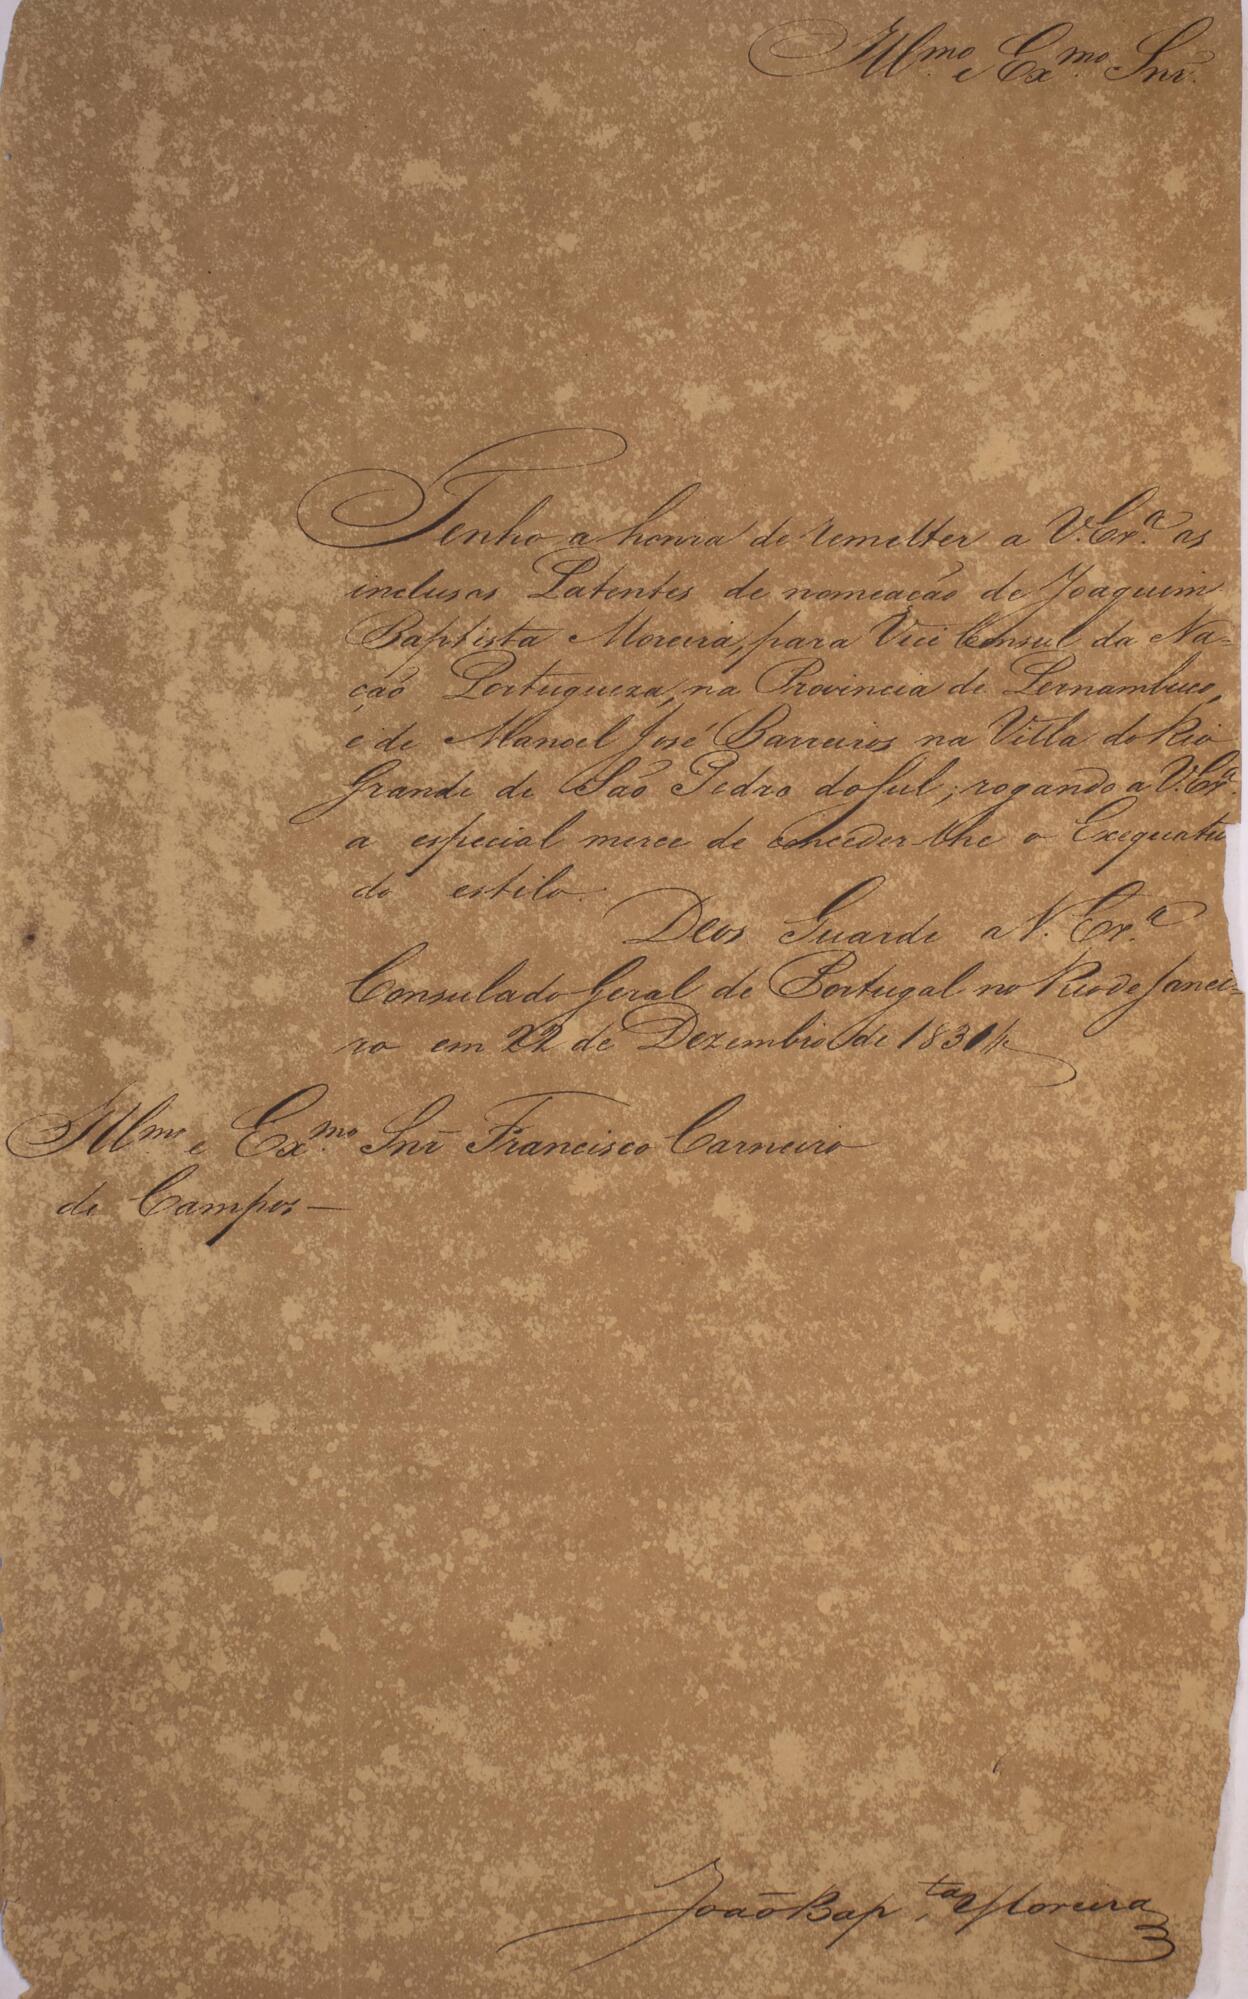 Illmo. e Exmo. Snr.
Tenho a honra de remetter a V. Exa. as
inclusas Patentes de nomeação de Joaquim
Baptista Moreira, para Vice Consul da Na-
ção Portugueza, na Provincia de Pernambuco,
e de Manoel José Barreiros na Villa do Rio
Grande de São Pedro do Sul; rogando a V. Exa.
a especial merce de conceder-lhe o Exequatu
do estilo.
Deos Guarde a V. Exa.
Consulado Geral de Portugal no Rio de Janei-
ro em 22 de Dezembro de 1830
Illmo. e Exmo. Snr Francisco Carneiro
de Campos —
João Bapta. Moreira